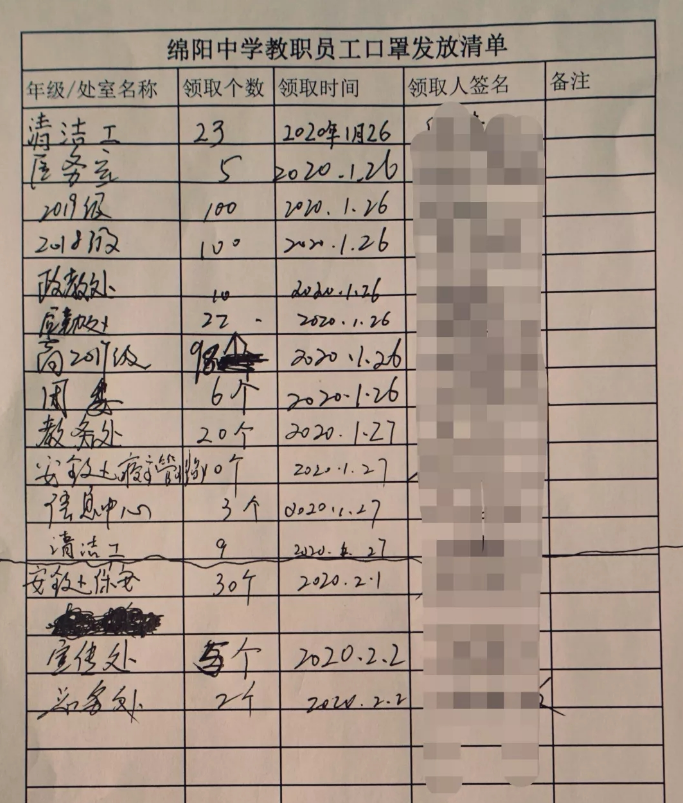 绵阳中学教职员工口罩发放清单
年级/处室名称 领取个数 领取时间 领取人签名 备注
清洁工 23 2020年1月26
医务室 5 2020.1.26
2019级 100 2020.1.26
2018级 100 2020.1.26
政教处 10 2020.1.26
22 2020.1.26
高2017级 98个 2020.1.26
团委 6个 2020.1.26
教务处 20个 2020.1.27
安全处 10个 2020.1.27
信息中心 3个 2020.1.27
清洁工 9 2020.1.27
安全处保安 30个 2020.2.1
宣传处 个 2020.2.2
总务处 2个 2020.2.2